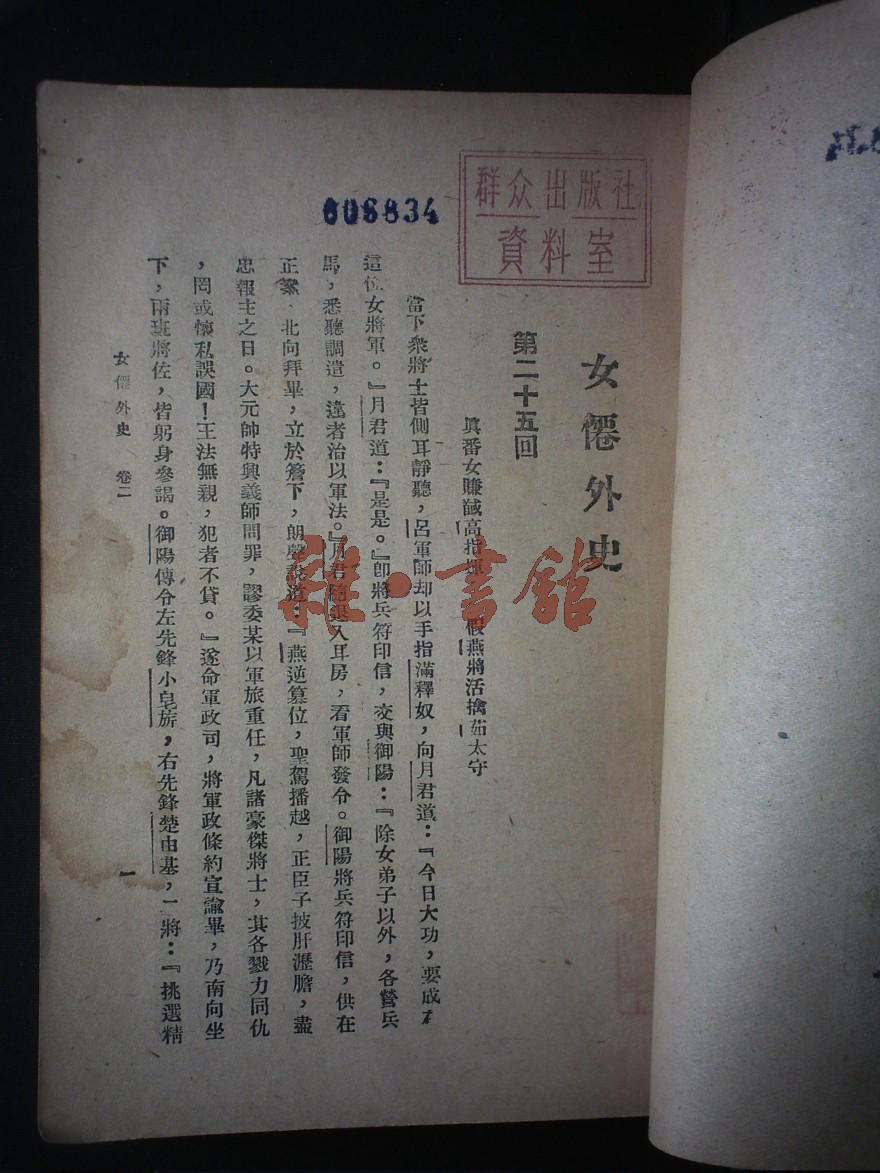 群众出版社
資料室
606834
女僊外史
第二十五回
眞番女賺馘高指揮　假燕將活擒茹太守
當下衆將士皆側耳靜聽，呂軍師却以手指滿釋奴，向月君道：『今日大功，要成在
這位女將軍。』月君道：『是是。』卽將兵符印信，交與御陽：『除女弟子以外，各營兵
馬，悉聽調遣，違者治以軍法。』月君隨退入耳房，看軍師發令。御陽將兵符印信，供在
正案、北向拜畢，立於簷下，朗聲說道：『燕逆簒位，聖駕播越，正臣子披肝瀝膽，盡
忠報主之日。大元帥特興義師問罪，謬委某以軍旅重任，凡諸豪傑將士，其各戮力同仇
，罔或懷私誤國！王法無親，犯者不貸。』遂命軍政司，將軍政條約宣諭畢，乃南向坐
下，兩班將佐，皆躬身參謁。御陽傳令左先鋒小皂旂，右先鋒楚由基，二將：『挑選精
女僊外史　卷二
一
雜·書館